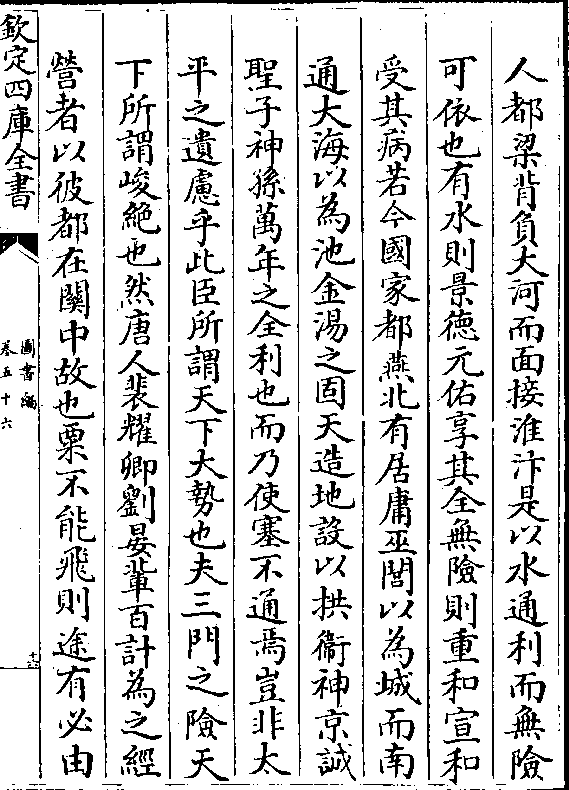 人都梁背負大河而面接淮汴是以水通利而無險
可依也有水則景德元佑享其全無險則重和宣和
受其病若今國家都燕北有居庸巫閭以為城而南
通大海以為池金湯之固天造地設以拱衞神京誠
聖子神孫萬年之全利也而乃使塞不通焉豈非太
平之遺慮乎此臣所謂天下大勢也夫三門之險天
下所謂峻絶也然唐人裴耀卿劉晏輩百計為之經
營者以彼都在關中故也粟不能飛則途有必由
欽定四庫全書
圖書編
卷五十六